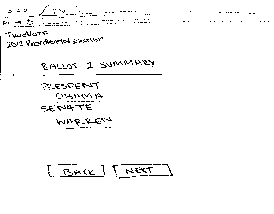 TwoVote
2012 Presidential Election
BALLOT 2 SUMMARY
PRESIDENT
OBAMA
SENATE
WARREN
[ BACK ] [ NEXT ]